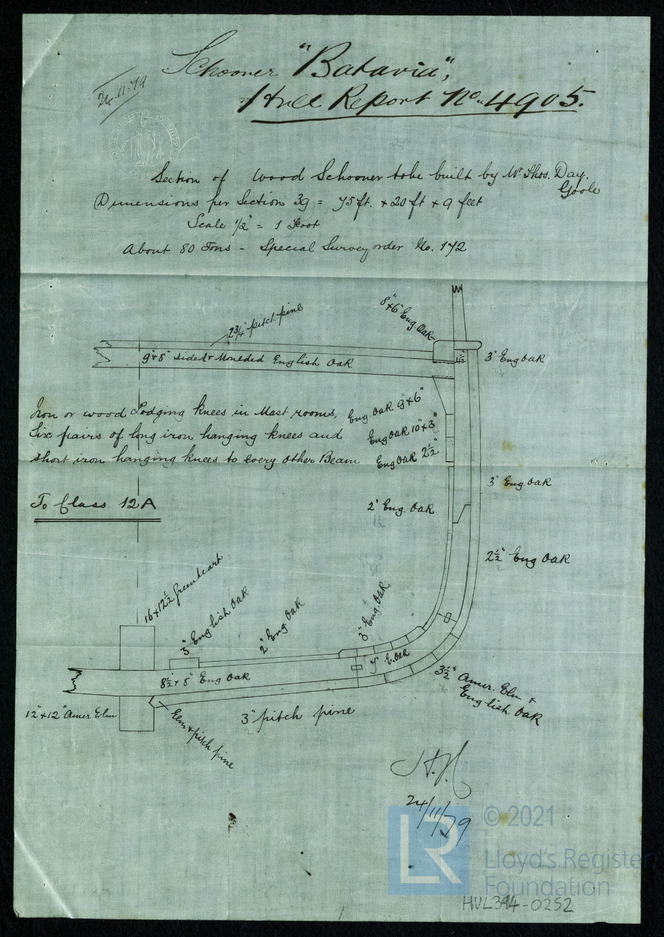 Schooner "Batavia",
Hull Report No. 4905.
Section of Wood Schooner to be built by Mr Thos. Day.
Goole
Dimensions per Section 39 = 75 ft. + 20 ft + 9 feet
Scale ½" = 1 Foot
About 80 Tons - Special Survey order No. 172
2¾" pitch pine
8"x6" Eng Oak
9"+8" sided & Moulded English Oak
3" Eng Oak
Iron or wood Lodging knees in Mast rooms,
Six pairs of long iron hanging knees and
short iron hanging knees to every other Beam
Eng Oak 9"x6"
Eng Oak 10"x3"
Eng Oak 2½"
3" Eng Oak
To Class 12A
2" Eng. Oak
2½" Eng Oak
16x12½ Greenheart
3" English Oak
2" Eng Oak
3" Eng. Oak
4" E. Oak
8½+8" Eng Oak
3½" Amer. Elm +
English Oak
12"+12" Amer Elm
Elm + pitch pine
3" pitch pine
24/11/79
© 2021
LR
Lloyd's Register
Foundation
HUL394-0252